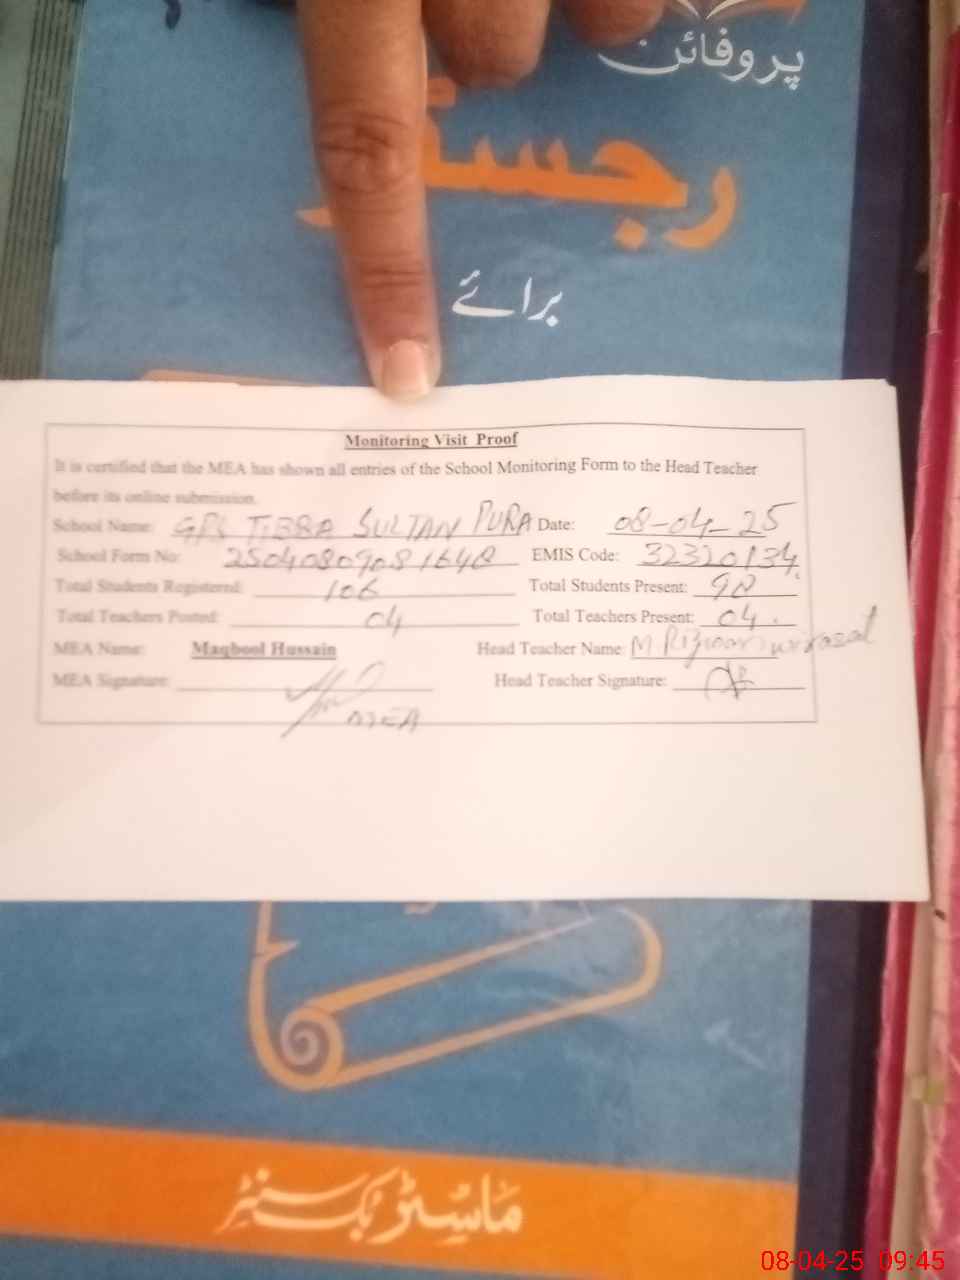 پروفائن
رجسٹر
برائے
Monitoring Visit Proof
It is certified that the MEA has shown all entries of the School Monitoring Form to the Head Teacher
before its online submission.
School Name: GPS TIBBA SULTAN PURA Date: 08-04-25
School Form No: 25040809081648 EMIS Code: 32320134
Total Students Registered: 106 Total Students Present: 98
Total Teachers Posted: 04 Total Teachers Present: 04
MEA Name: Maqbool Hussain Head Teacher Name: M Rizwan
MEA Signature: MEA Head Teacher Signature:
ماسٹر بک سنٹر
08-04-25 09:45